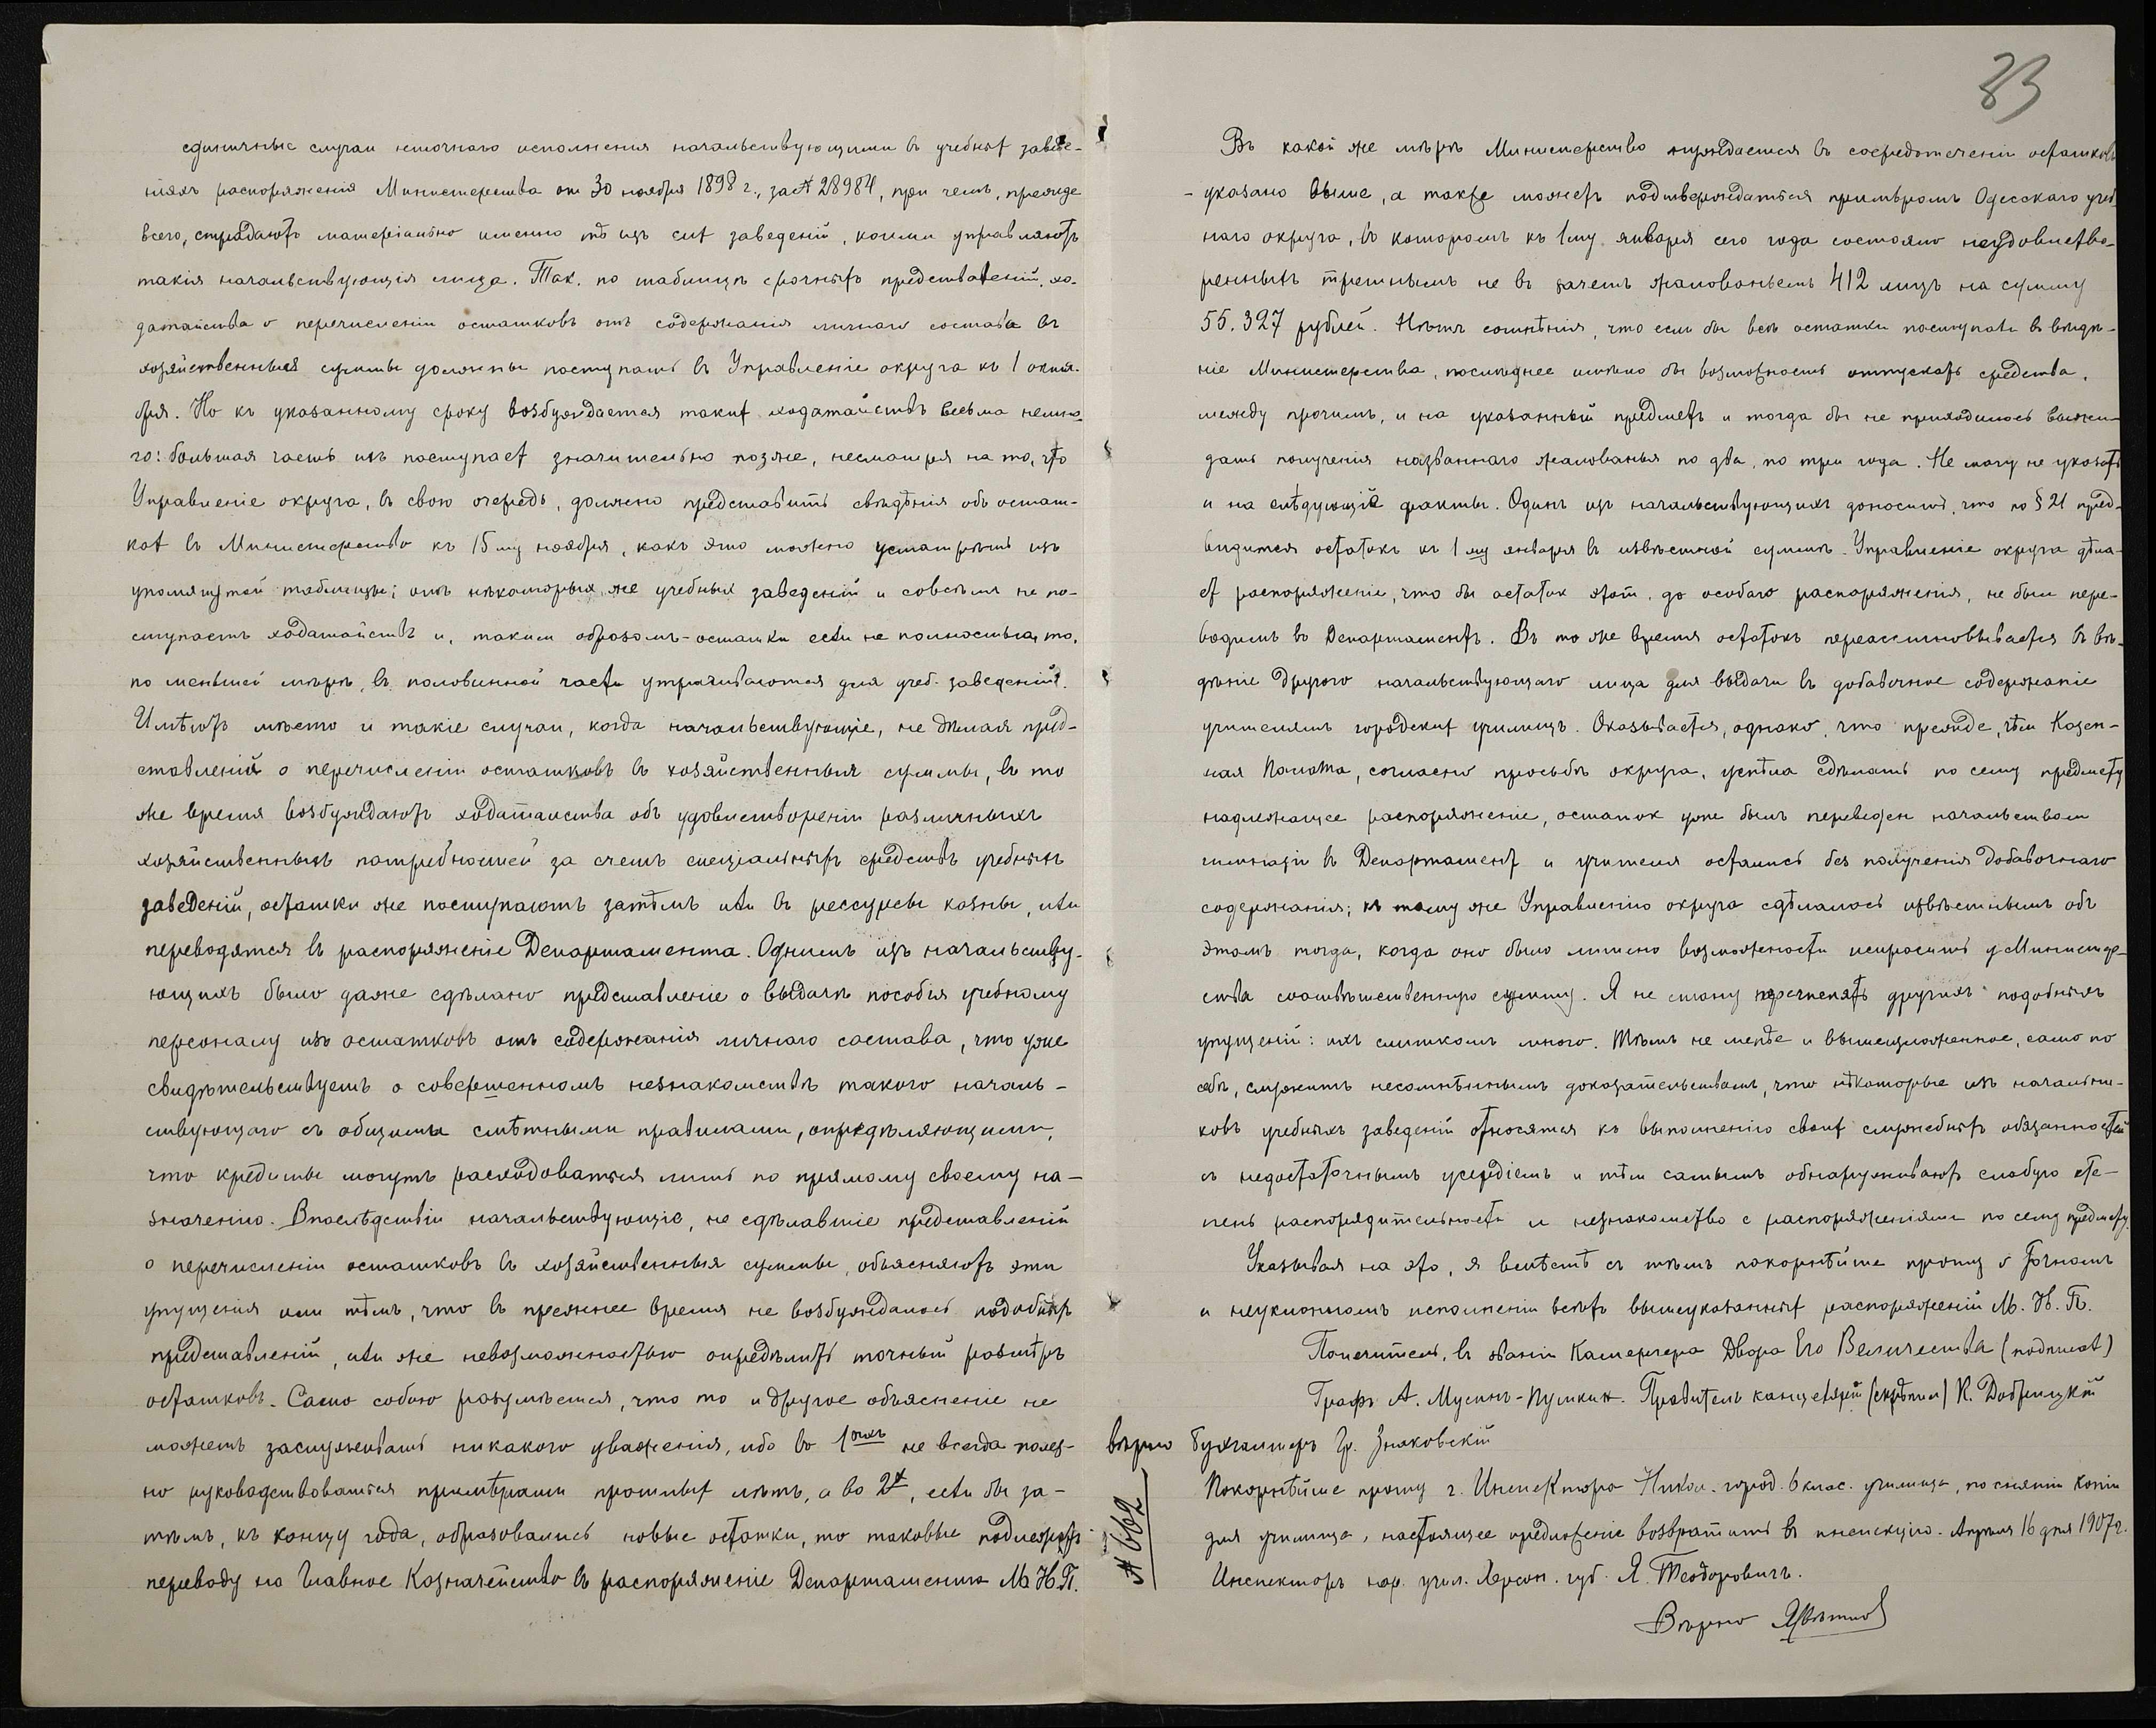 единичные случаи неточнаго исполненія начальствующими въ учебных заведе-
ніяхъ распоряженія Министерства от 30 ноября 1898 г., за № 28984, при чемъ, прежде
всего, страдаютъ матеріально именно тѣ изъ сих заведеній, коими управляютъ
такія начальствующія лица. Так, по таблицѣ срочныхъ представленій, хо-
датайства о перечисленіи остатковъ отъ содержанія личнаго состава въ
хозяйственныя суммы должны поступать въ Управленіе округа къ 1 октя-
бря. Но къ указанному сроку возбуждается таких ходатайствъ весьма немно-
го: большая часть ихъ поступает значительно позже, несмотря на то, что
Управленіе округа, въ свою очередь, должно представить свѣдѣнія объ остат-
ках въ Министерство къ 15му ноября, какъ это можно усмотрѣть изъ
упомянутой таблицы; отъ нѣкоторых же учебных заведеній и совсѣмъ не по-
ступаетъ ходатайствъ и, таким образомъ - остатки если не полностью, то,
по меньшей мѣрѣ, въ половинной части утрачиваются для учеб. заведеній.
Имѣютъ мѣсто и такіе случаи, когда начальствующіе, не дѣлая пред-
ставленій о перечисленіи остатковъ въ хозяйственныя суммы, въ то
же время возбуждаютъ ходатайства объ удовлетвореніи различныхъ
хозяйственныхъ потребностей за счетъ спеціальныхъ средствъ учебныхъ
заведеній, остатки же поступаютъ затѣмъ или въ рессурсы казны, или
переводятся въ распоряженіе Департамента. Однимъ изъ начальству-
ющихъ было даже сдѣлано представленіе о выдачѣ пособія учебному
персоналу изъ остатковъ отъ содержанія личнаго состава, что уже
свидѣтельствуетъ о совершенномъ незнакомствѣ такого началь-
ствующаго съ общими смѣтными правилами, опредѣляющими,
что кредиты могутъ расходоваться лишь по прямому своему на-
значенію. Впослѣдствіи начальствующіе, не сдѣлавшіе представленій
о перечисленіи остатковъ въ хозяйственныя суммы, объясняютъ эти
упущенія или тѣмъ, что въ прежнее время не возбуждалось подобныхъ
представленій, или же невозможностью опредѣлить точный размѣръ
остатковъ. Само собою разумѣется, что то и другое объясненіе не
можетъ заслуживать никакого уваженія, ибо во 1ыхъ не всегда полез-
но руководствоваться примѣрами прошлых лѣтъ, а во 2х, если бы за-
тѣмъ, къ концу года, образовались новые остатки, то таковые подлежатъ
переводу на Главное Казначейство въ распоряженіе Департамента М. Н. П.
83
Въ какой же мѣрѣ Министерство нуждается въ сосредоточеніи остатковъ
- указано выше, а также может подтверждаться примѣромъ Одесскаго учеб-
наго округа, въ которомъ къ 1му января сего года состояло неудовлетво-
ренныхъ третнымъ не въ зачетъ жалованьемъ 412 лицъ на сумму
55.327 рублей. Нѣтъ сомнѣнія, что если бы всѣ остатки поступали в вѣдѣ-
ніе Министерства, послѣднее имѣло бы возможность отпускать средства,
между прочимъ, и на указанный предметъ и тогда бы не приходилось выжи-
дать полученія названнаго жалованья по два, по три года. Не могу не указать
и на слѣдующіе факты. Одинъ изъ начальствующихъ доноситъ, что по § 21 пред-
видится остатокъ къ 1му января въ извѣстной суммѣ. Управленіе округа дѣла-
ет распоряженіе, что бы остаток этот, до особаго распоряженія, не был пере-
водимъ въ Департаментъ. Въ то же время остатокъ переассигновывается въ вѣ-
дѣніе другого начальствующаго лица для выдачи въ добавочное содержаніе
учителямъ городских училищъ. Оказывается, однако, что прежде, чѣм Казен-
ная Палата, согласно просьбѣ округа, успѣла сдѣлать по сему предмету
надлежащее распоряженіе, остаток уже былъ переведен начальством
гимназіи въ Департамент и учителя остались без полученія добавочнаго
содержанія; къ тому же Управленію округа сдѣлалось извѣстнымъ объ
этомъ тогда, когда оно было лишено возможности испросить у Министер-
ства соотвѣтственную сумму. Я не стану перечислять другихъ подобныхъ
упущеній: ихъ слишкомъ много. Тѣмъ не менѣе и вышеизложенное, само по
себѣ, служитъ несомнѣннымъ доказательствомъ, что нѣкоторые изъ начальни-
ковъ учебныхъ заведеній относятся къ выполненію своих служебныхъ обязанностей
съ недостаточнымъ усердіемъ и тѣм самымъ обнаруживаютъ слабую сте-
пень распорядительности и незнакомство с распоряженіями по сему предмету.
Указывая на это, я вмѣстѣ съ тѣмъ покорнѣйше прошу о точномъ
и неуклонномъ исполненіи всѣхъ вышеуказанных распоряженій М. Н. П.
Попечитель, въ званіи Камергера Двора Его Величества (подписал)
Графъ А. Мусинъ-Пушкин. Правитель канцеляріи (скрѣпил) К. Добрицкій
вѣрно Бухгалтеръ Гр. Зняковскій
№ 662
Покорнѣйше прошу г. Инспектора Никол. город. 6 клас. училища, по снятіи копіи
для училища, настоящее предложеніе возвратить въ инспекцію. Апрѣля 16 дня 1907 г.
Инспекторъ нар. учил. Херсон. губ. Я. Теодоровичъ.
Вѣрно